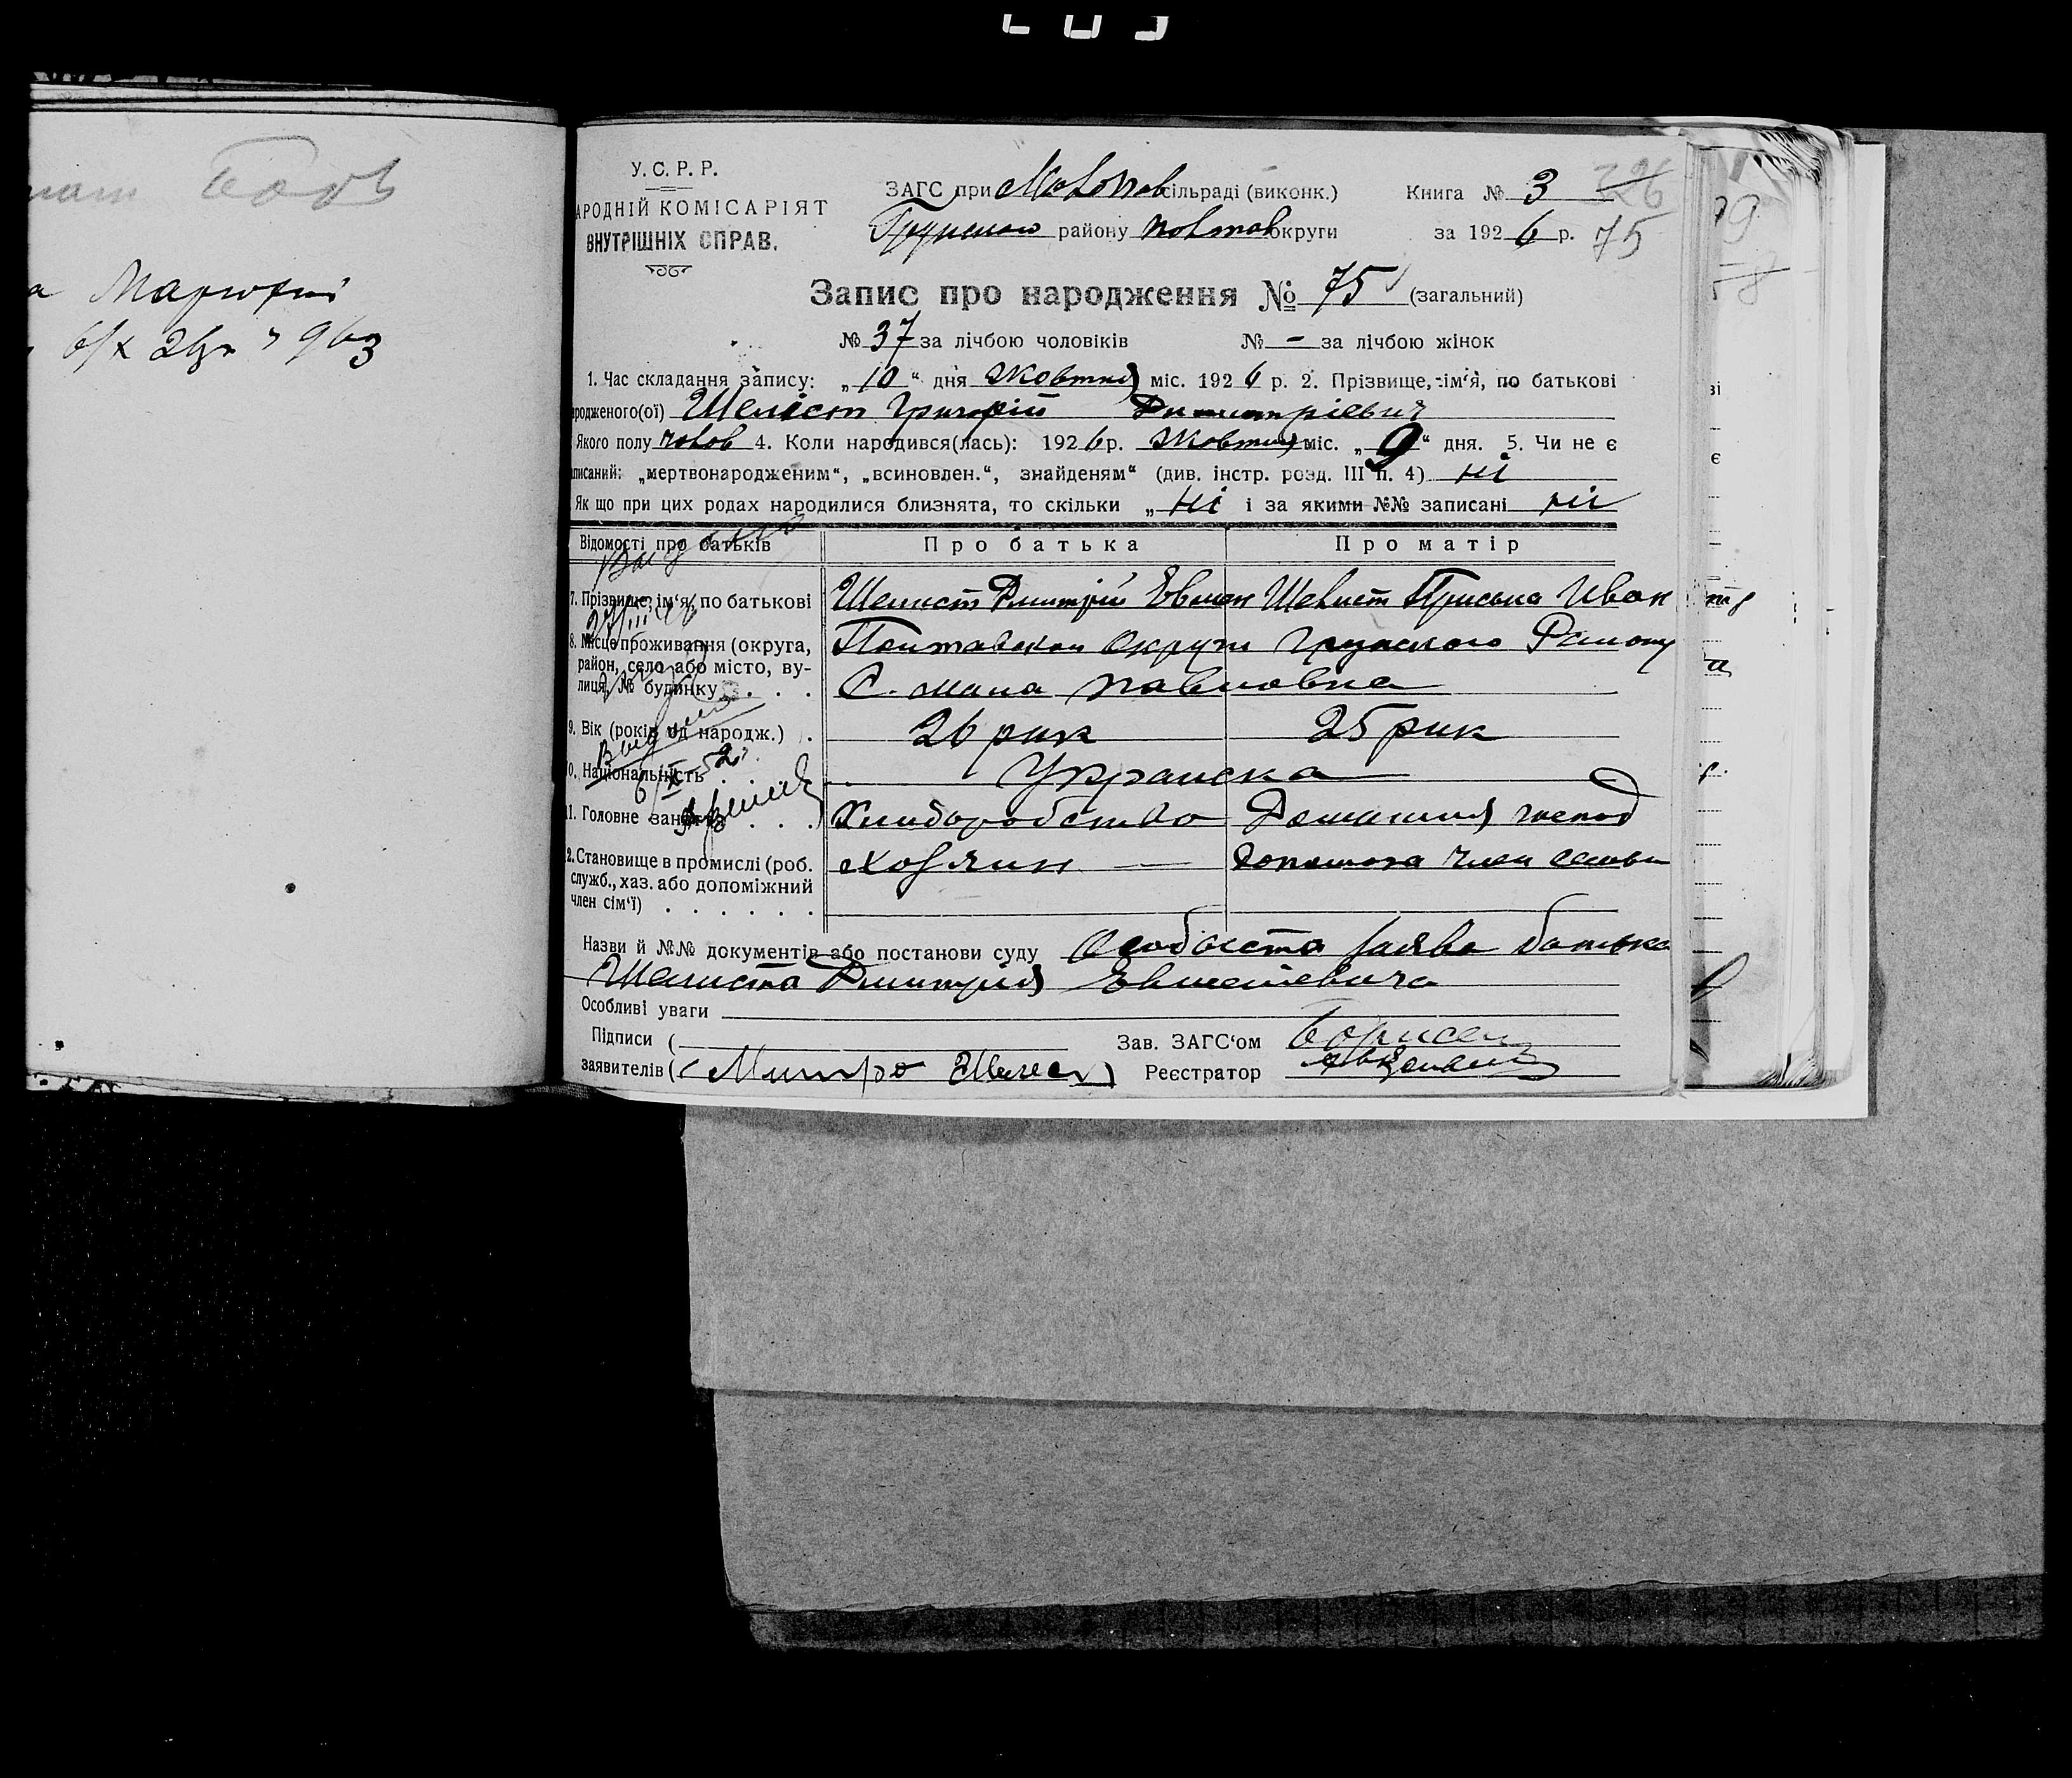 Марюхні
У. С. Р. Р.
АРОДНІЙ КОМІСАРІЯТ
ВНУТРІШНІХ СПРАВ.
ЗАГС при сільраді (виконк.) Книга № 3 226
Грунського району Полтав округи за 1926 р. 75
Запис про народження № 75 (загальний)
№ 37 за лічбою чоловіків № – за лічбою жінок
1. Час складання запису: „10“ дня Жовтня міс. 1926 р. 2. Прізвище, ім‘я, по батькові
родженого(ої) Шеліст Григорій Дмитрієвич
Якого полу чолов 4. Коли народився(лась): 1926 р. Жовтня міс. „9“ дня. 5. Чи не є
писаний: „мертвонародженим“, „всиновлен.“, знайденям“ (див. інстр. розд. III п. 4) ні
Як що при цих родах народилися близнята, то скільки „ ні і за якими №№ записані ні
Відомості про батьків Про батька Про матір
7. Прізвище, ім‘я, по батькові Шелист Дмитрій Евмен Шелист Приська Иван
8. Місце проживання (округа, Полтавскои Округи Грунского Району
район, село або місто, ву-
лиця, № будинку . . . С. мала павловка
9. Вік (років од народж.) . 26 рик 25 рик
10. Національність Украиска
11. Головне заняття . . . Хлиборобство Домашня господ
12. Становище в промислі (роб. Хозяин — допомога член семьи
служб., хаз. або допоміжний
член сім‘ї) . . . . . .
Назви й №№ документів або постанови суду Особиста заява батька
Шелиста Дмитрія Евменіевича
Особливі уваги
Підписи ( Зав. ЗАГС‘ом Борисен
заявителів ( Митро Шелес Реєстратор